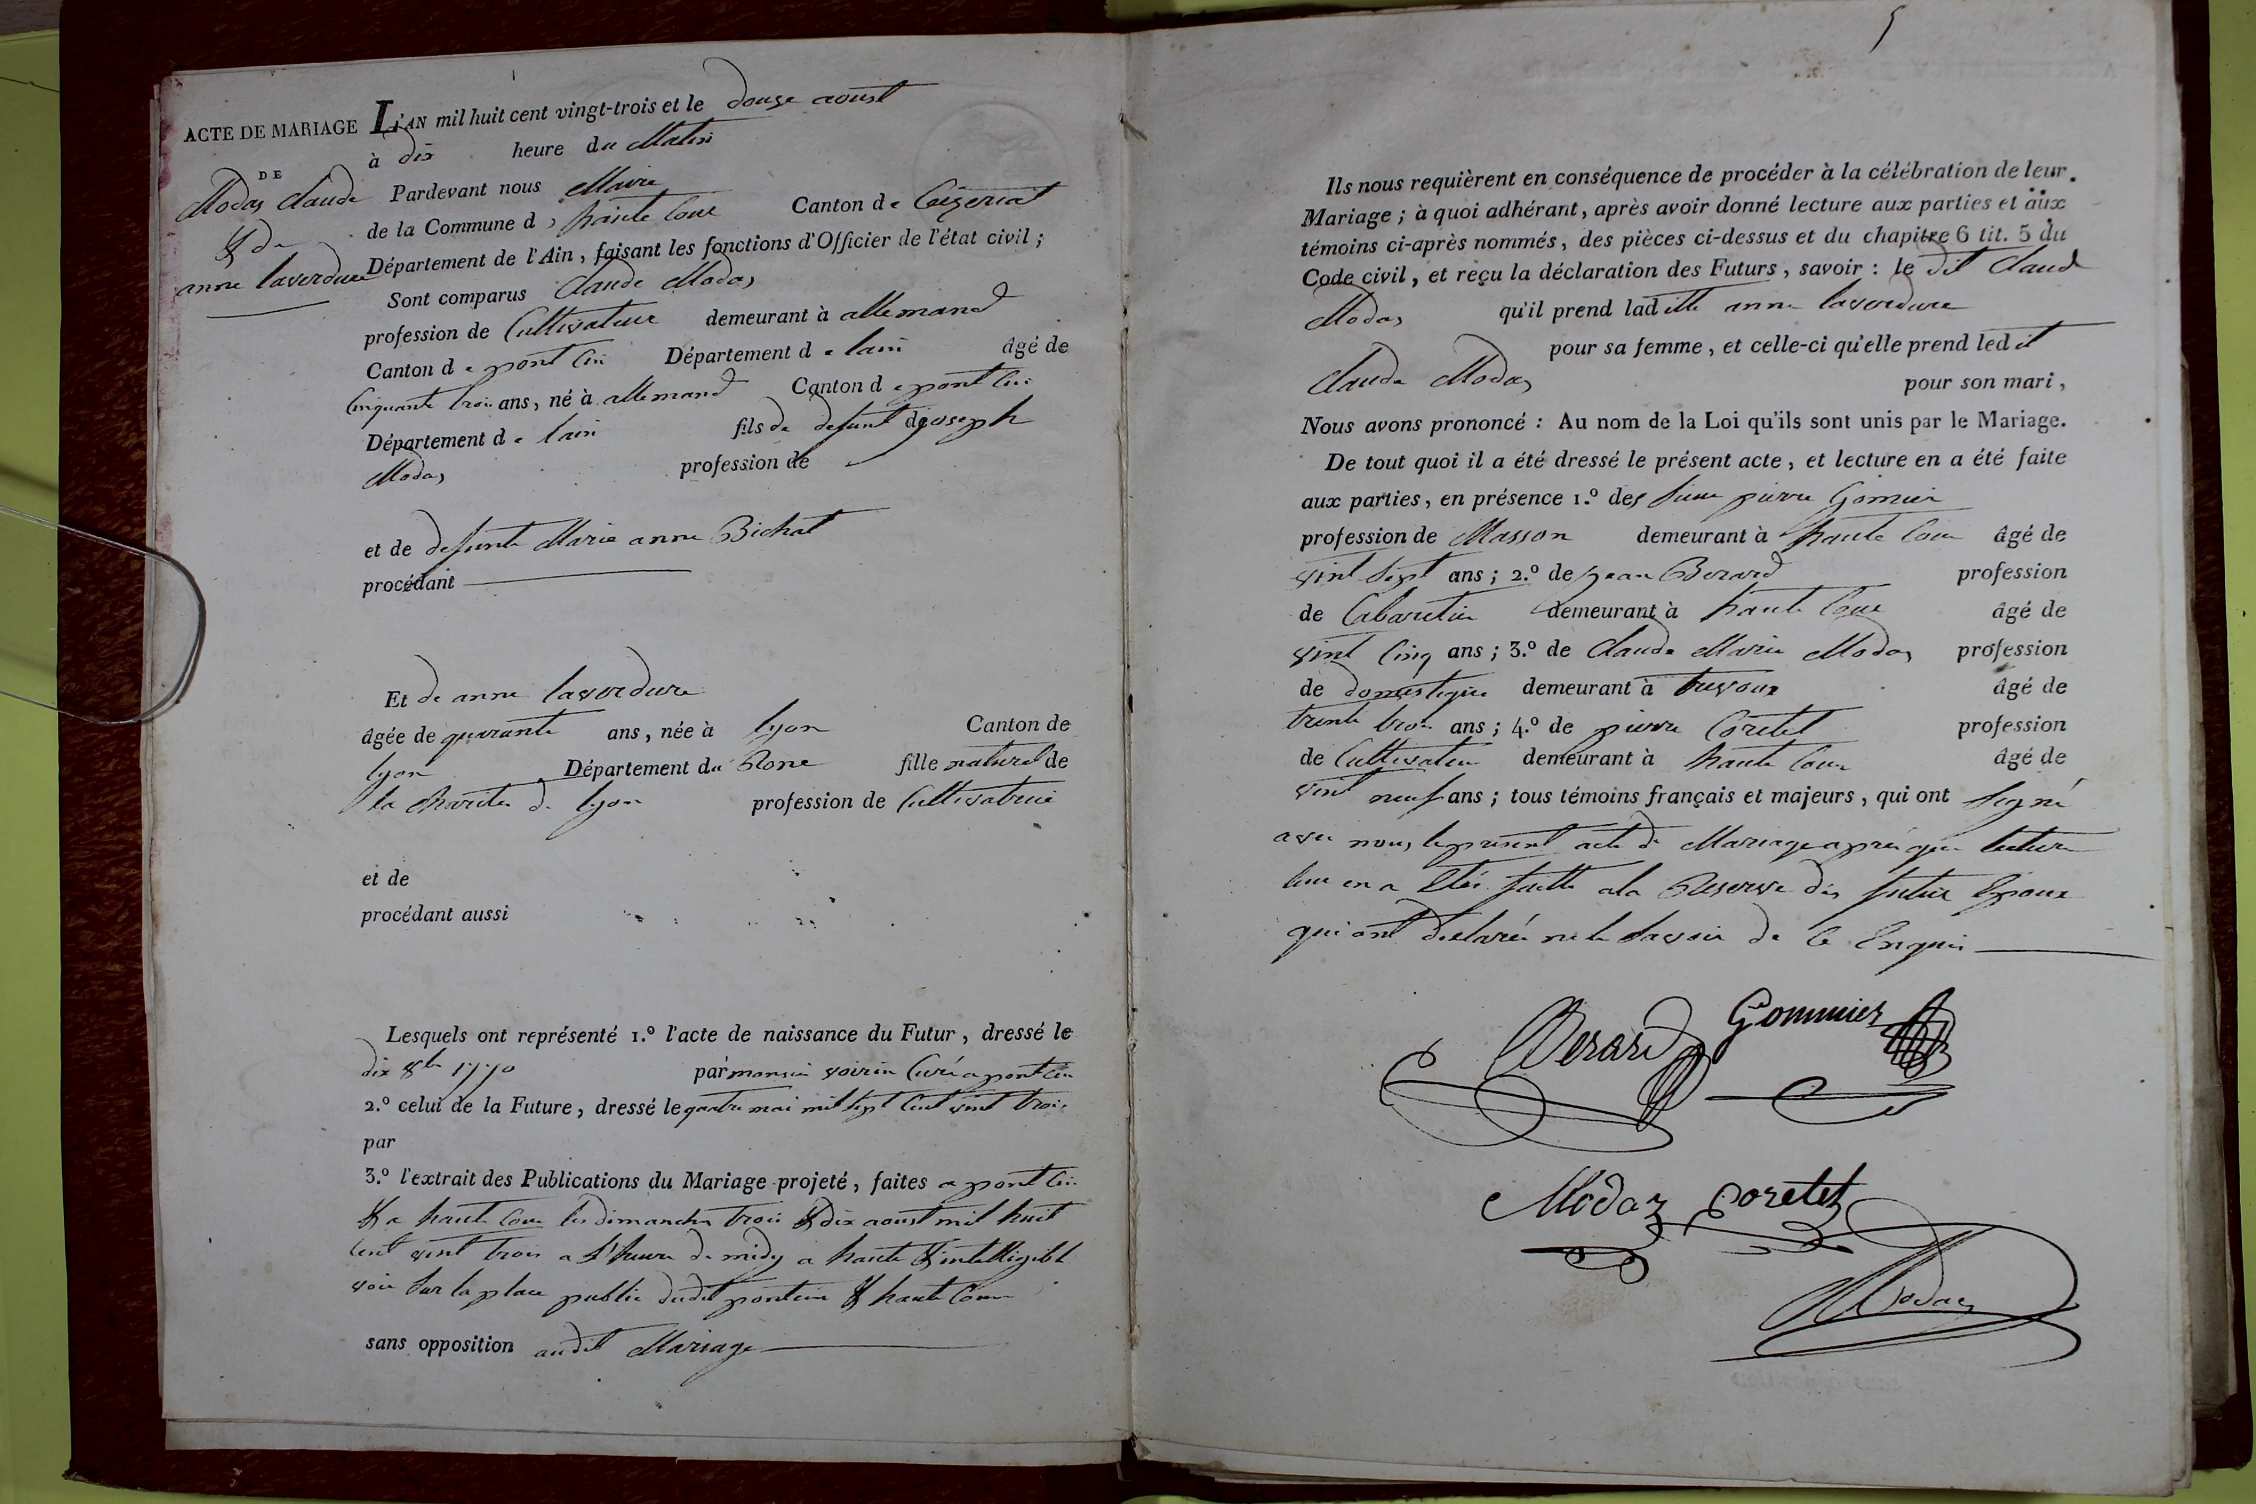 ACTE DE MARIAGE
DE
Modas Claude
& de
anne laverdure
L'AN mil huit cent vingt-trois et le douze aoust
à dix heure du Matin
Pardevant nous Maire
de la Commune d haute Cour Canton de Ceÿzeriat
Département de l'Ain, faisant les fonctions d'Officier de l'état civil;
Sont comparus Claude Modas
profession de Cultivateur demeurant à allemand
Canton de pont Cin Département de lain âgé de
Cinquante trois ans, né à allemand Canton de pont Cin
Département de lain fils de defunt joseph
Modas profession de
et de defunte Marie anne Bichat
procédant
Et de anne laverdure
âgée de quarante ans, née à lyon Canton de
lyon Département du Rone fille naturel de
la charite de lyon profession de Cultivatrice
et de
procédant aussi
Lesquels ont représenté 1.º l'acte de naissance du Futur, dressé le
dix 8bre 1770 par monsieur voirin Curé a pont Cin
2.º celui de la Future, dressé le quatre mai mil sept Cent vint trois
par
3.º l'extrait des Publications du Mariage projeté, faites a pont Cin
& a haute Cour les dimanches trois & dix aoust mil huit
Cent vint trois a l'heure de midy a haute & intelligible
voie sur la place public dudit pontein & haute Cour
sans opposition audit Mariage
5
Ils nous requièrent en conséquence de procéder à la célébration de leur
Mariage; à quoi adhérant, après avoir donné lecture aux parties et aux
témoins ci-après nommés, des pièces ci-dessus et du chapitre 6 tit. 5 du
Code civil, et reçu la déclaration des Futurs, savoir: le dit Claud
Modas qu'il prend ladite anne laverdure
pour sa femme, et celle-ci qu'elle prend ledit
Claude Modas pour son mari,
Nous avons prononcé: Au nom de la Loi qu'ils sont unis par le Mariage.
De tout quoi il a été dressé le présent acte, et lecture en a été faite
aux parties, en présence 1.º des sieur pierre Gomier
profession de Masson demeurant à haute Cour âgé de
vint sept ans; 2.º de jean Berard profession
de Cabaretier demeurant à haute Cour âgé de
vint Cinq ans; 3.º de Claude Marie Modas profession
de domestique demeurant à trevoux âgé de
trente trois ans; 4.º de pierre Coretet profession
de Cultivateur demeurant à haute Cour âgé de
vint neuf ans; tous témoins français et majeurs, qui ont signé
avec nous le present acte de Mariage apres que lecture
leur en a Etés faitte a la Reserve des futur Epoux
qui ont declarée ne le savoir de Ce Enquis
Berard Gommier
Modaz Coretet
Modas